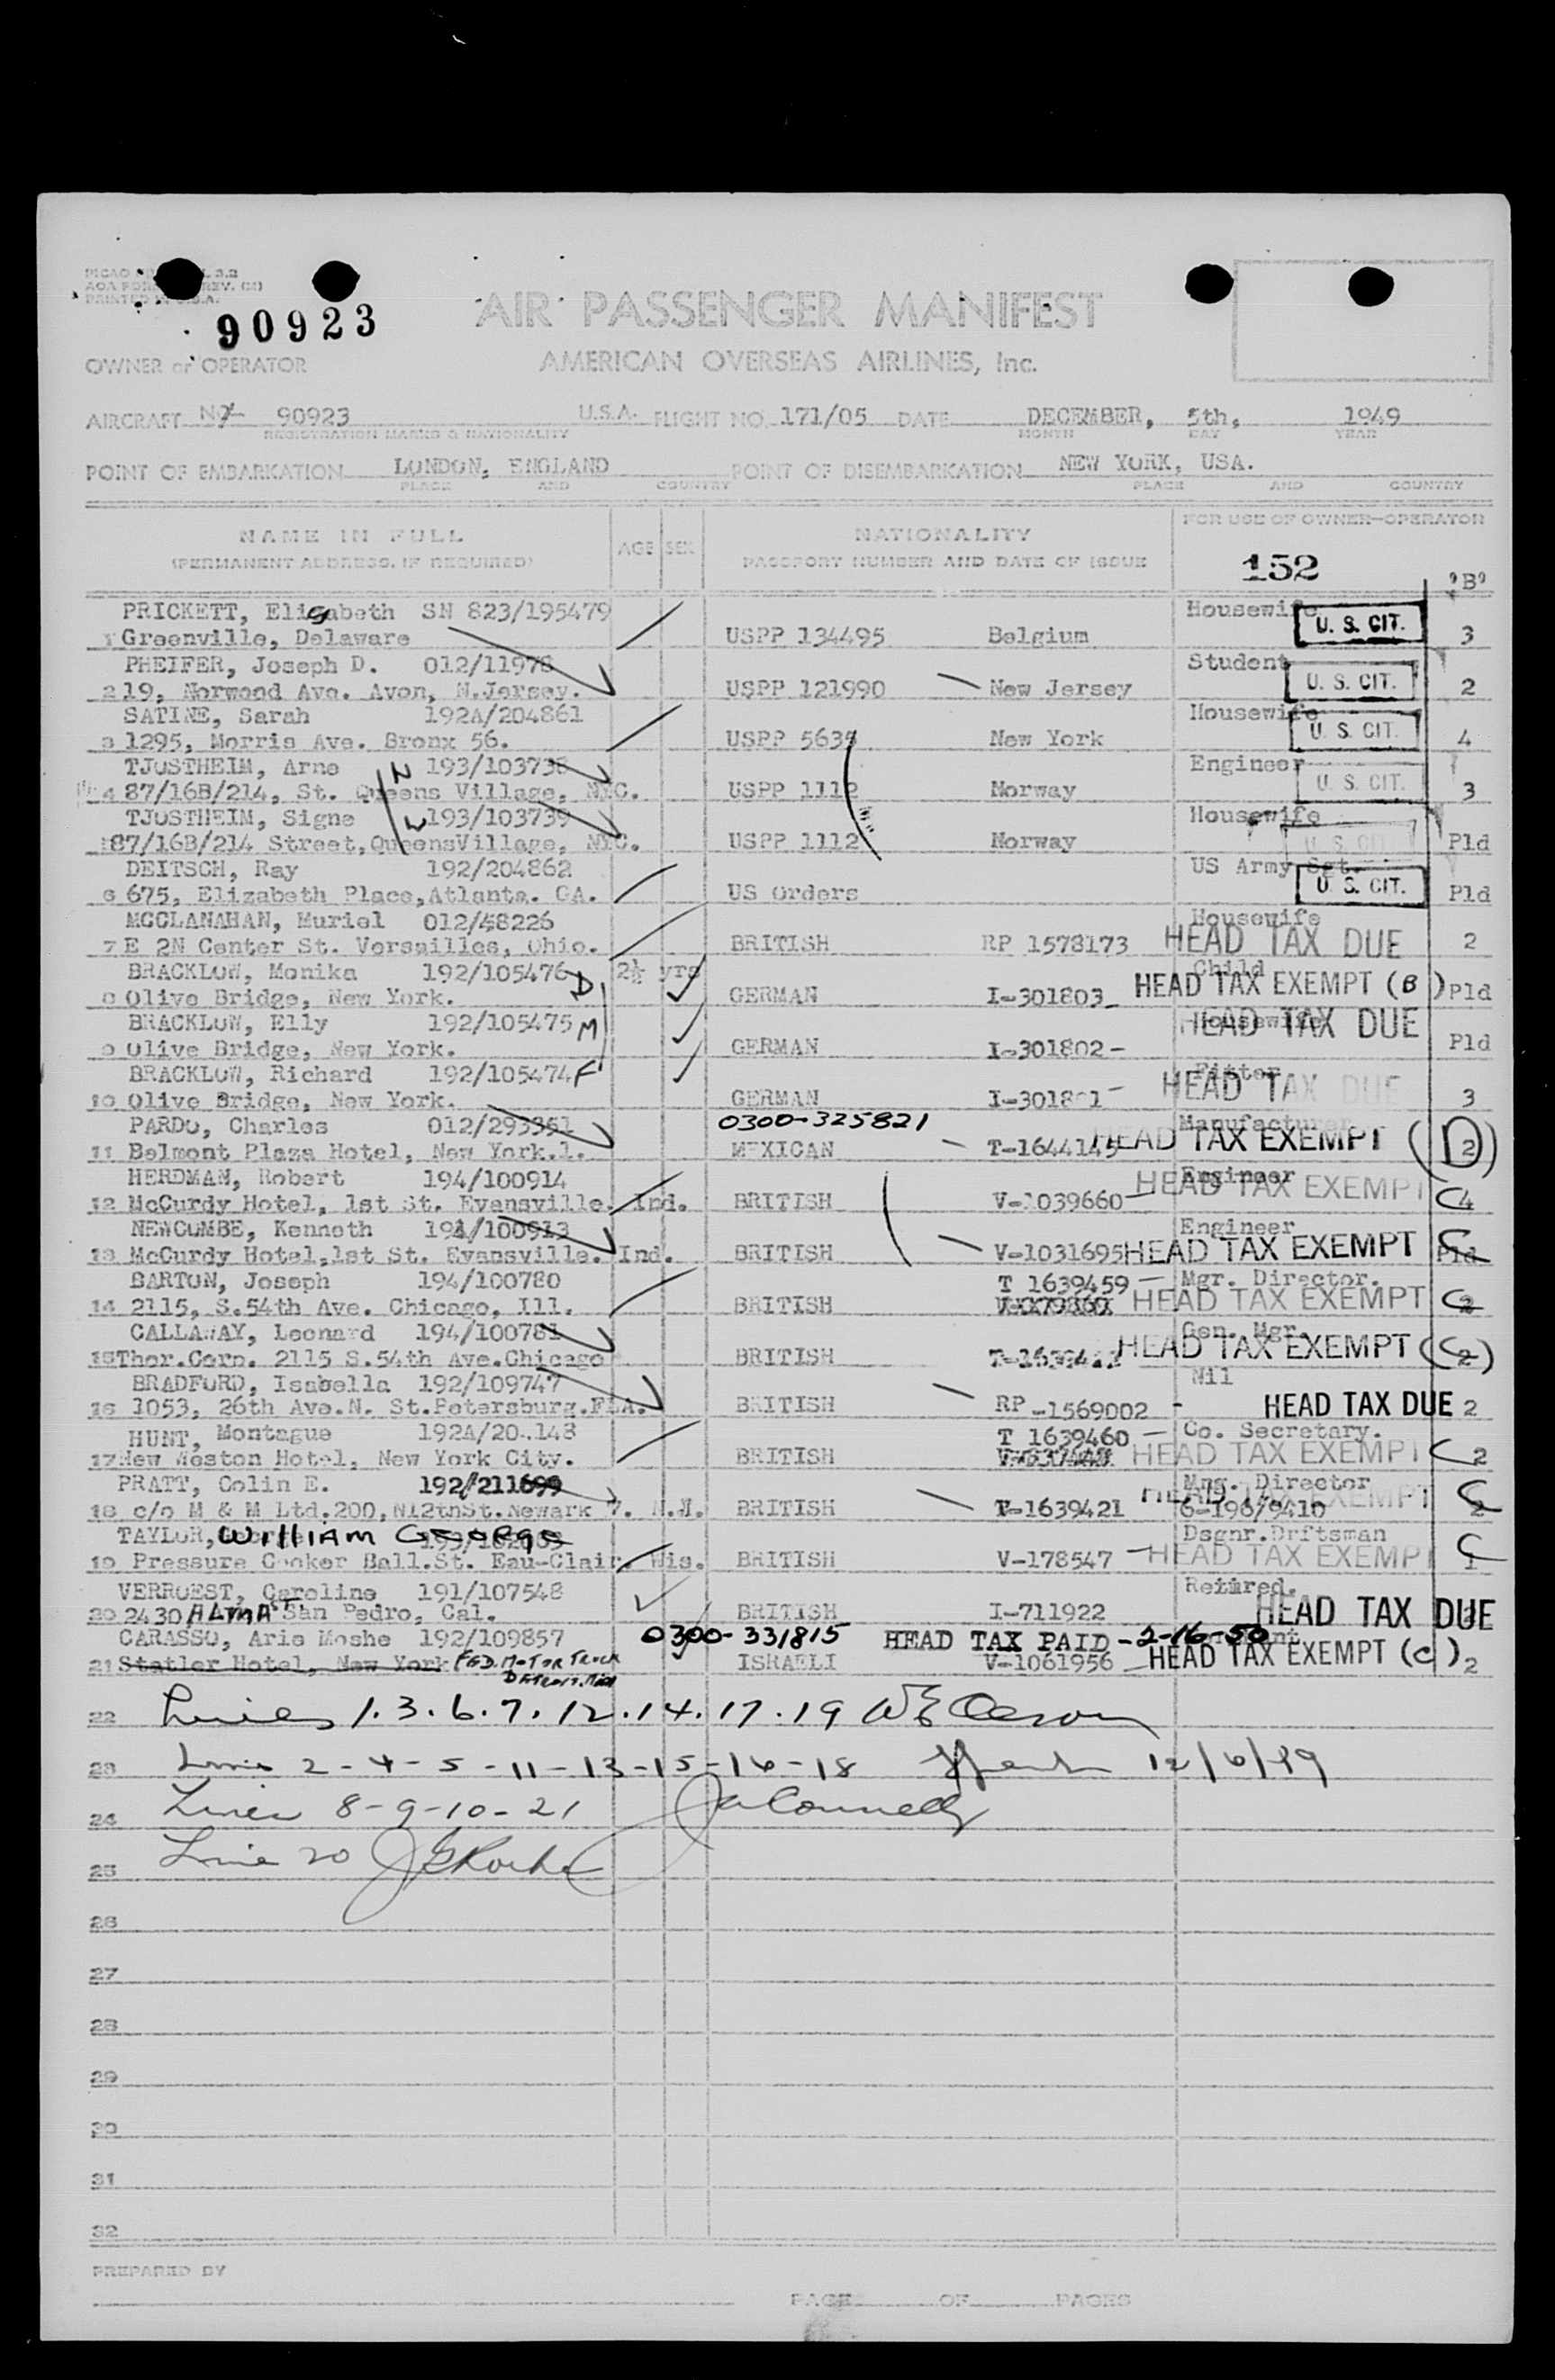 PRINTED IN U.S.A.
90923
AIR PASSENGER MANIFEST
OWNER or OPERATOR AMERICAN OVERSEAS AIRLINES, Inc.
AIRCRAFT 90923 U.S.A. FLIGHT NO. 171/05 DATE DECEMBER, 5th, 1949
REGISTRATION MARKS & NATIONALITY MONTH DAY YEAR
POINT OF EMBARKATION LONDON, ENGLAND POINT OF DISEMBARKATION NEW YORK, USA.
PLACE AND COUNTRY PLACE AND COUNTRY
NAME IN FULL AGE SEX NATIONALITY FOR USE OF OWNER-OPERATOR
(PERMANENT ADDRESS, IF REQUIRED) PASSPORT NUMBER AND DATE OF ISSUE 152 'B'
PRICKETT, Elisabeth SN 823/195479 Housewife
1 Greenville, Delaware USPP 134495 Belgium U. S. CIT. 3
PHEIFER, Joseph D. 012/11978 Student
2 19, Norwood Ave. Avon, N.Jersey. USPP 121990 New Jersey U. S. CIT. 2
SATINE, Sarah 192A/204861 Housewife
3 1295, Morris Ave. Bronx 56. USPP 5635 New York U. S. CIT. 4
TJOSTHEIM, Arne 193/103738 Engineer
4 87/16B/214, St. Queens Village, NYC. USPP 1112 Norway U. S. CIT. 3
TJOSTHEIM, Signe 193/103739 Housewife
87/16B/214 Street, QueensVillage, NYC. USPP 1112 Norway U. S. CIT. Pld
DEITSCH, Ray 192/204862 US Army Sgt.
6 675, Elizabeth Place, Atlanta. GA. US Orders U. S. CIT. Pld
MCCLANAHAN, Muriel 012/48226 Housewife
7 E 2N Center St. Versailles, Ohio. BRITISH RP 1578173 HEAD TAX DUE 2
BRACKLOW, Monika 192/105476 D 2½ yrs Child
8 Olive Bridge, New York. GERMAN I-301803 HEAD TAX EXEMPT (B) Pld
BRACKLOW, Elly 192/105475 M Housewife HEAD TAX DUE
9 Olive Bridge, New York. GERMAN I-301802 - Pld
BRACKLOW, Richard 192/105474 F Fitter HEAD TAX DUE
10 Olive Bridge, New York. GERMAN 3
PARDO, Charles 0300-325821 Manufacturer
11 Belmont Plaza Hotel, New York.1. MEXICAN T-1644145 HEAD TAX EXEMPT (D) 2
HERDMAN, Robert 194/100914 Engineer
12 McCurdy Hotel, 1st St. Evansville. Ind. BRITISH V-1039660 HEAD TAX EXEMPT C 4
NEWCOMBE, Kenneth 194/100913 Engineer
13 McCurdy Hotel, 1st St. Evansville. Ind. BRITISH V-1031695 HEAD TAX EXEMPT C Pld
BARTON, Joseph 194/100780 T 1639459 Mgr. Director.
14 2115, S.54th Ave. Chicago, Ill. BRITISH HEAD TAX EXEMPT C 2
CALLAWAY, Leonard 194/100781 Gen. Mgr.
15 Thor.Corp. 2115 S.54th Ave.Chicago BRITISH HEAD TAX EXEMPT (C 2)
BRADFORD, Isabella 192/109747 Nil
16 1053, 26th Ave.N. St.Petersburg.FLA. BRITISH RP -1569002 - HEAD TAX DUE 2
HUNT, Montague T 1639460 Co. Secretary.
17 New Weston Hotel, New York City. BRITISH HEAD TAX EXEMPT C 2
PRATT, Colin E. 192/211699 Mng. Director
18 c/o M & M Ltd.200, N12thSt. Newark 7. N.J. BRITISH T-1639421 6-196/9410 HEAD TAX EXEMPT C 2
TAYLOR, WILLIAM GEORGE Dsgnr.Drftsman
19 Pressure Cooker Ball.St. Eau-Clair. Wis. BRITISH V-178547 HEAD TAX EXEMPT C 1
VERRUEST, Caroline 191/107548 Retired.
20 2430 ALMA ST. San Pedro, Cal. BRITISH I-711922 HEAD TAX DUE
CARASSO, Aris Moshe 192/109857 0300-331815 HEAD TAX PAID - 2-16-50
21 Statler Hotel, New York FED. MOTOR TRUCK ISRAELI V-1061956 HEAD TAX EXEMPT (C) 2
22 Lines 1.3.6.7.12.14.17.19
23 Lines 2-4-5-11-13-15-16-18 12/6/49
24 Lines 8-9-10-21 Connelly
25 Line 20
26
27
28
29
30
31
32
PREPARED BY
PAGE OF PAGES